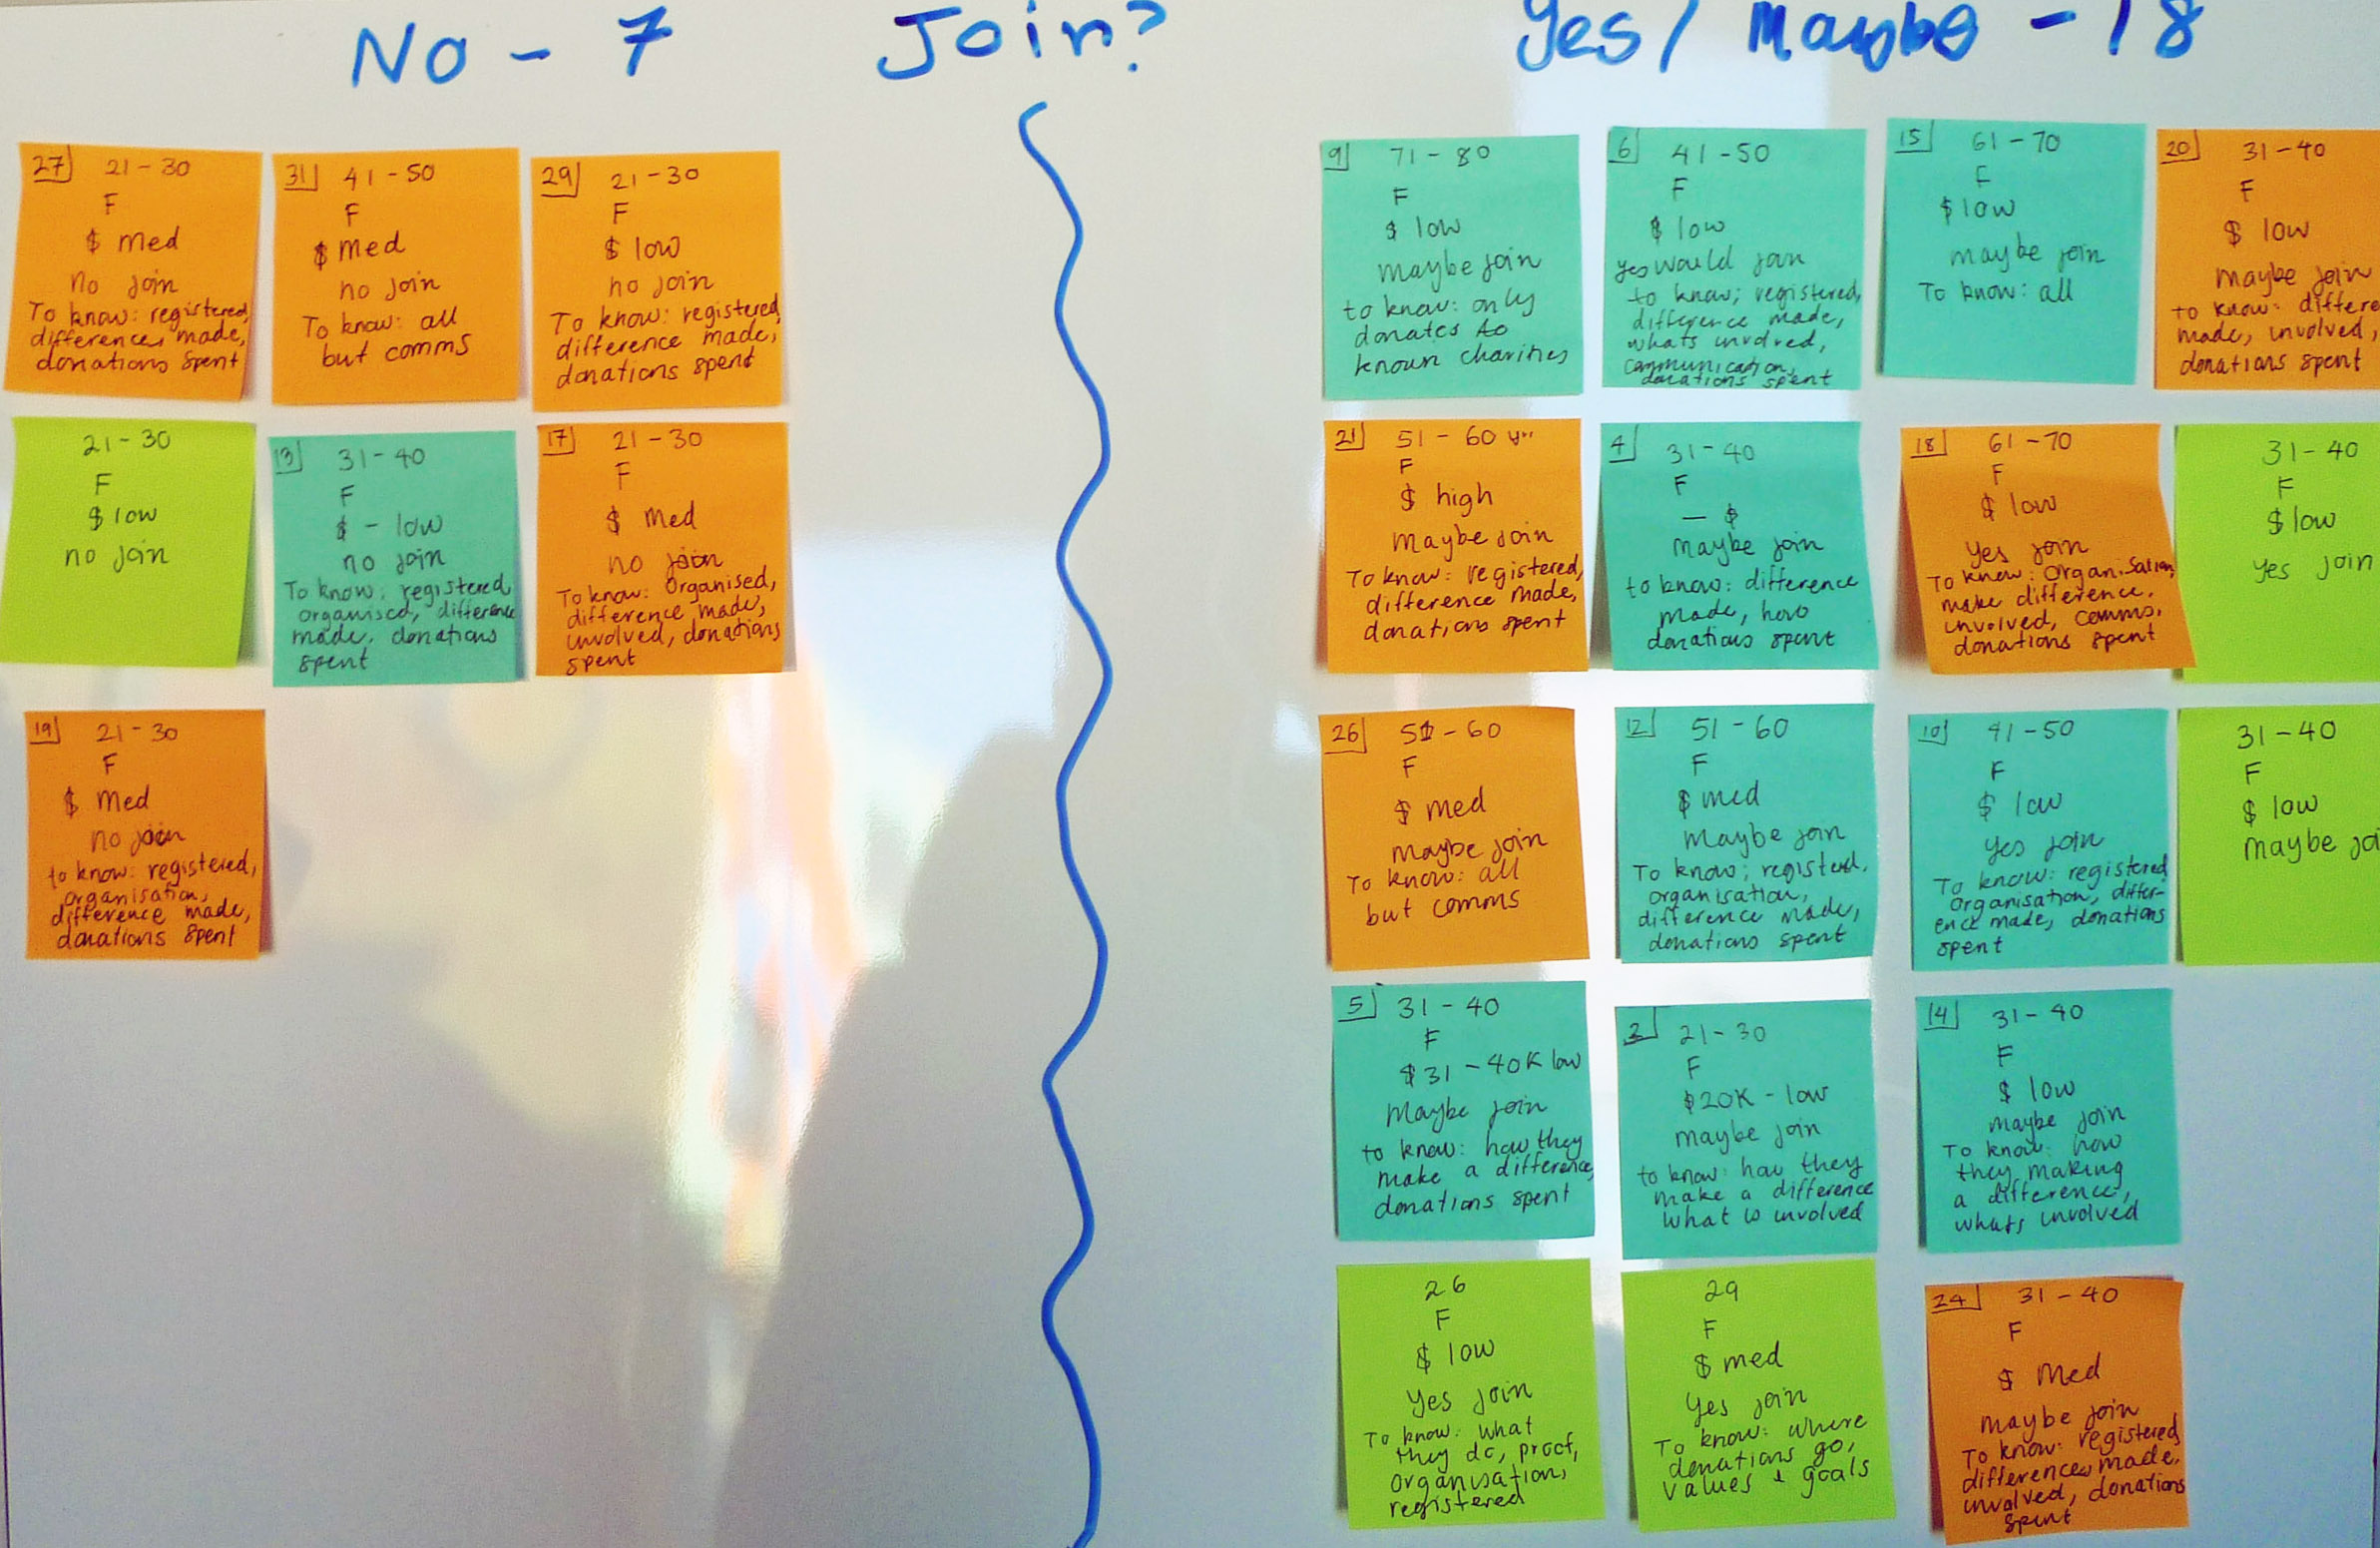 No - 7
Join?
Yes / Maybe - 18
27 21-30
F
$ med
no join
To know: registered,
differences made,
donations spent
31 41-50
F
$ med
no join
To know: all
but comms
29 21-30
F
$ low
no join
To know: registered
difference made,
donations spent
21-30
F
$ low
no join
13 31-40
F
$ - low
no join
To know: registered
organised, difference
made, donations
spent
17 21-30
F
$ Med
no join
To know: Organised,
difference made,
involved, donations
spent
19 21-30
F
$ Med
no join
to know: registered,
organisation,
difference made,
donations spent
9 71-80
F
$ low
maybe join
to know: only
donates to
known charities
6 41-50
F
$ low
yes would join
to know; registered,
difference made,
whats involved,
communication,
donations spent
15 61-70
F
$ low
maybe join
To know: all
20 31-40
F
$ low
maybe join
to know: differe
made, involved,
donations spent
21 51-60
F
$ high
Maybe join
To know: registered,
difference made,
donations spent
4 31-40
F
- $
maybe join
to know: difference
made, how
donations spent
18 61-70
F
$ low
Yes join
To know: Organisation,
make difference,
involved, comms,
donations spent
31-40
F
$ low
yes join
26 51-60
F
$ med
maybe join
To know: all
but comms
12 51-60
F
$ med
Maybe join
To know; registerd,
organisation,
difference made,
donations spent
10 41-50
F
$ low
yes join
To know: registered
organisation, differ-
ence made, donations
spent
31-40
F
$ low
maybe joi
5 31-40
F
$31-40K low
Maybe join
to know: how they
make a difference,
donations spent
2 21-30
F
$20K - low
maybe join
to know: how they
make a difference
what is involved
14 31-40
F
$ low
Maybe join
To know: how
they making
a difference,
whats involved
26
F
$ low
Yes join
To know: what
they do, proof,
organisation,
registered
29
F
$ med
Yes join
To know: where
donations go,
values & goals
24 31-40
F
$ Med
maybe join
To know: registered
differences made,
involved, donations
spent